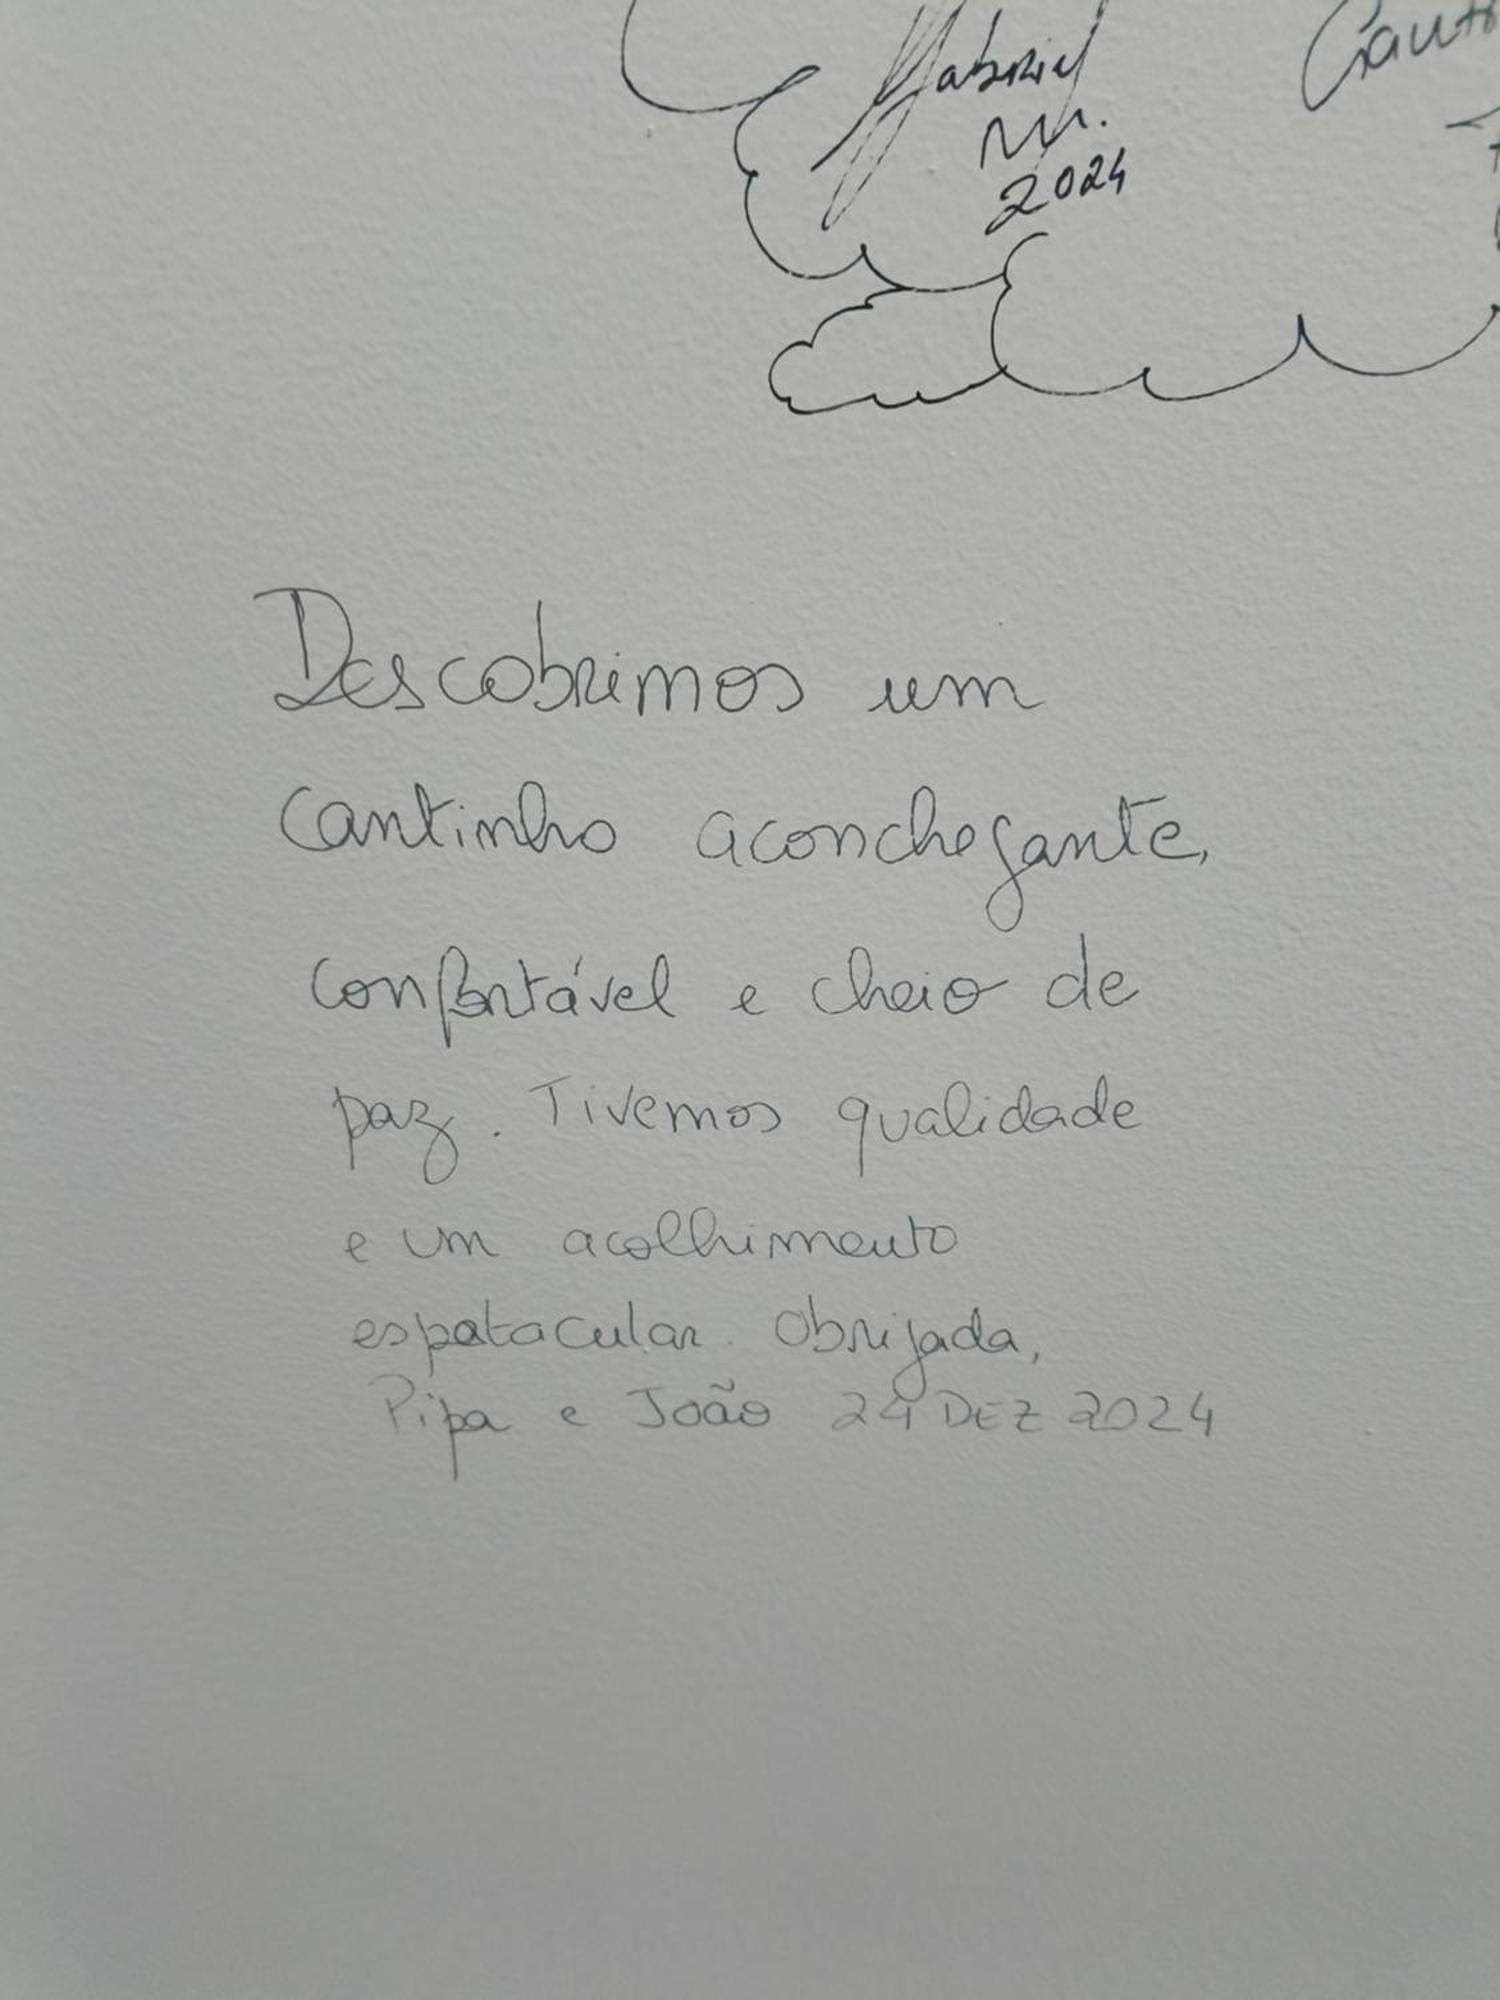 Gabriel
M.
2024
Descobrimos um
cantinho aconchegante,
confortável e cheio de
paz. Tivemos qualidade
e um acolhimento
espatacular. Obrigada,
Pipa e João 24 DEZ 2024